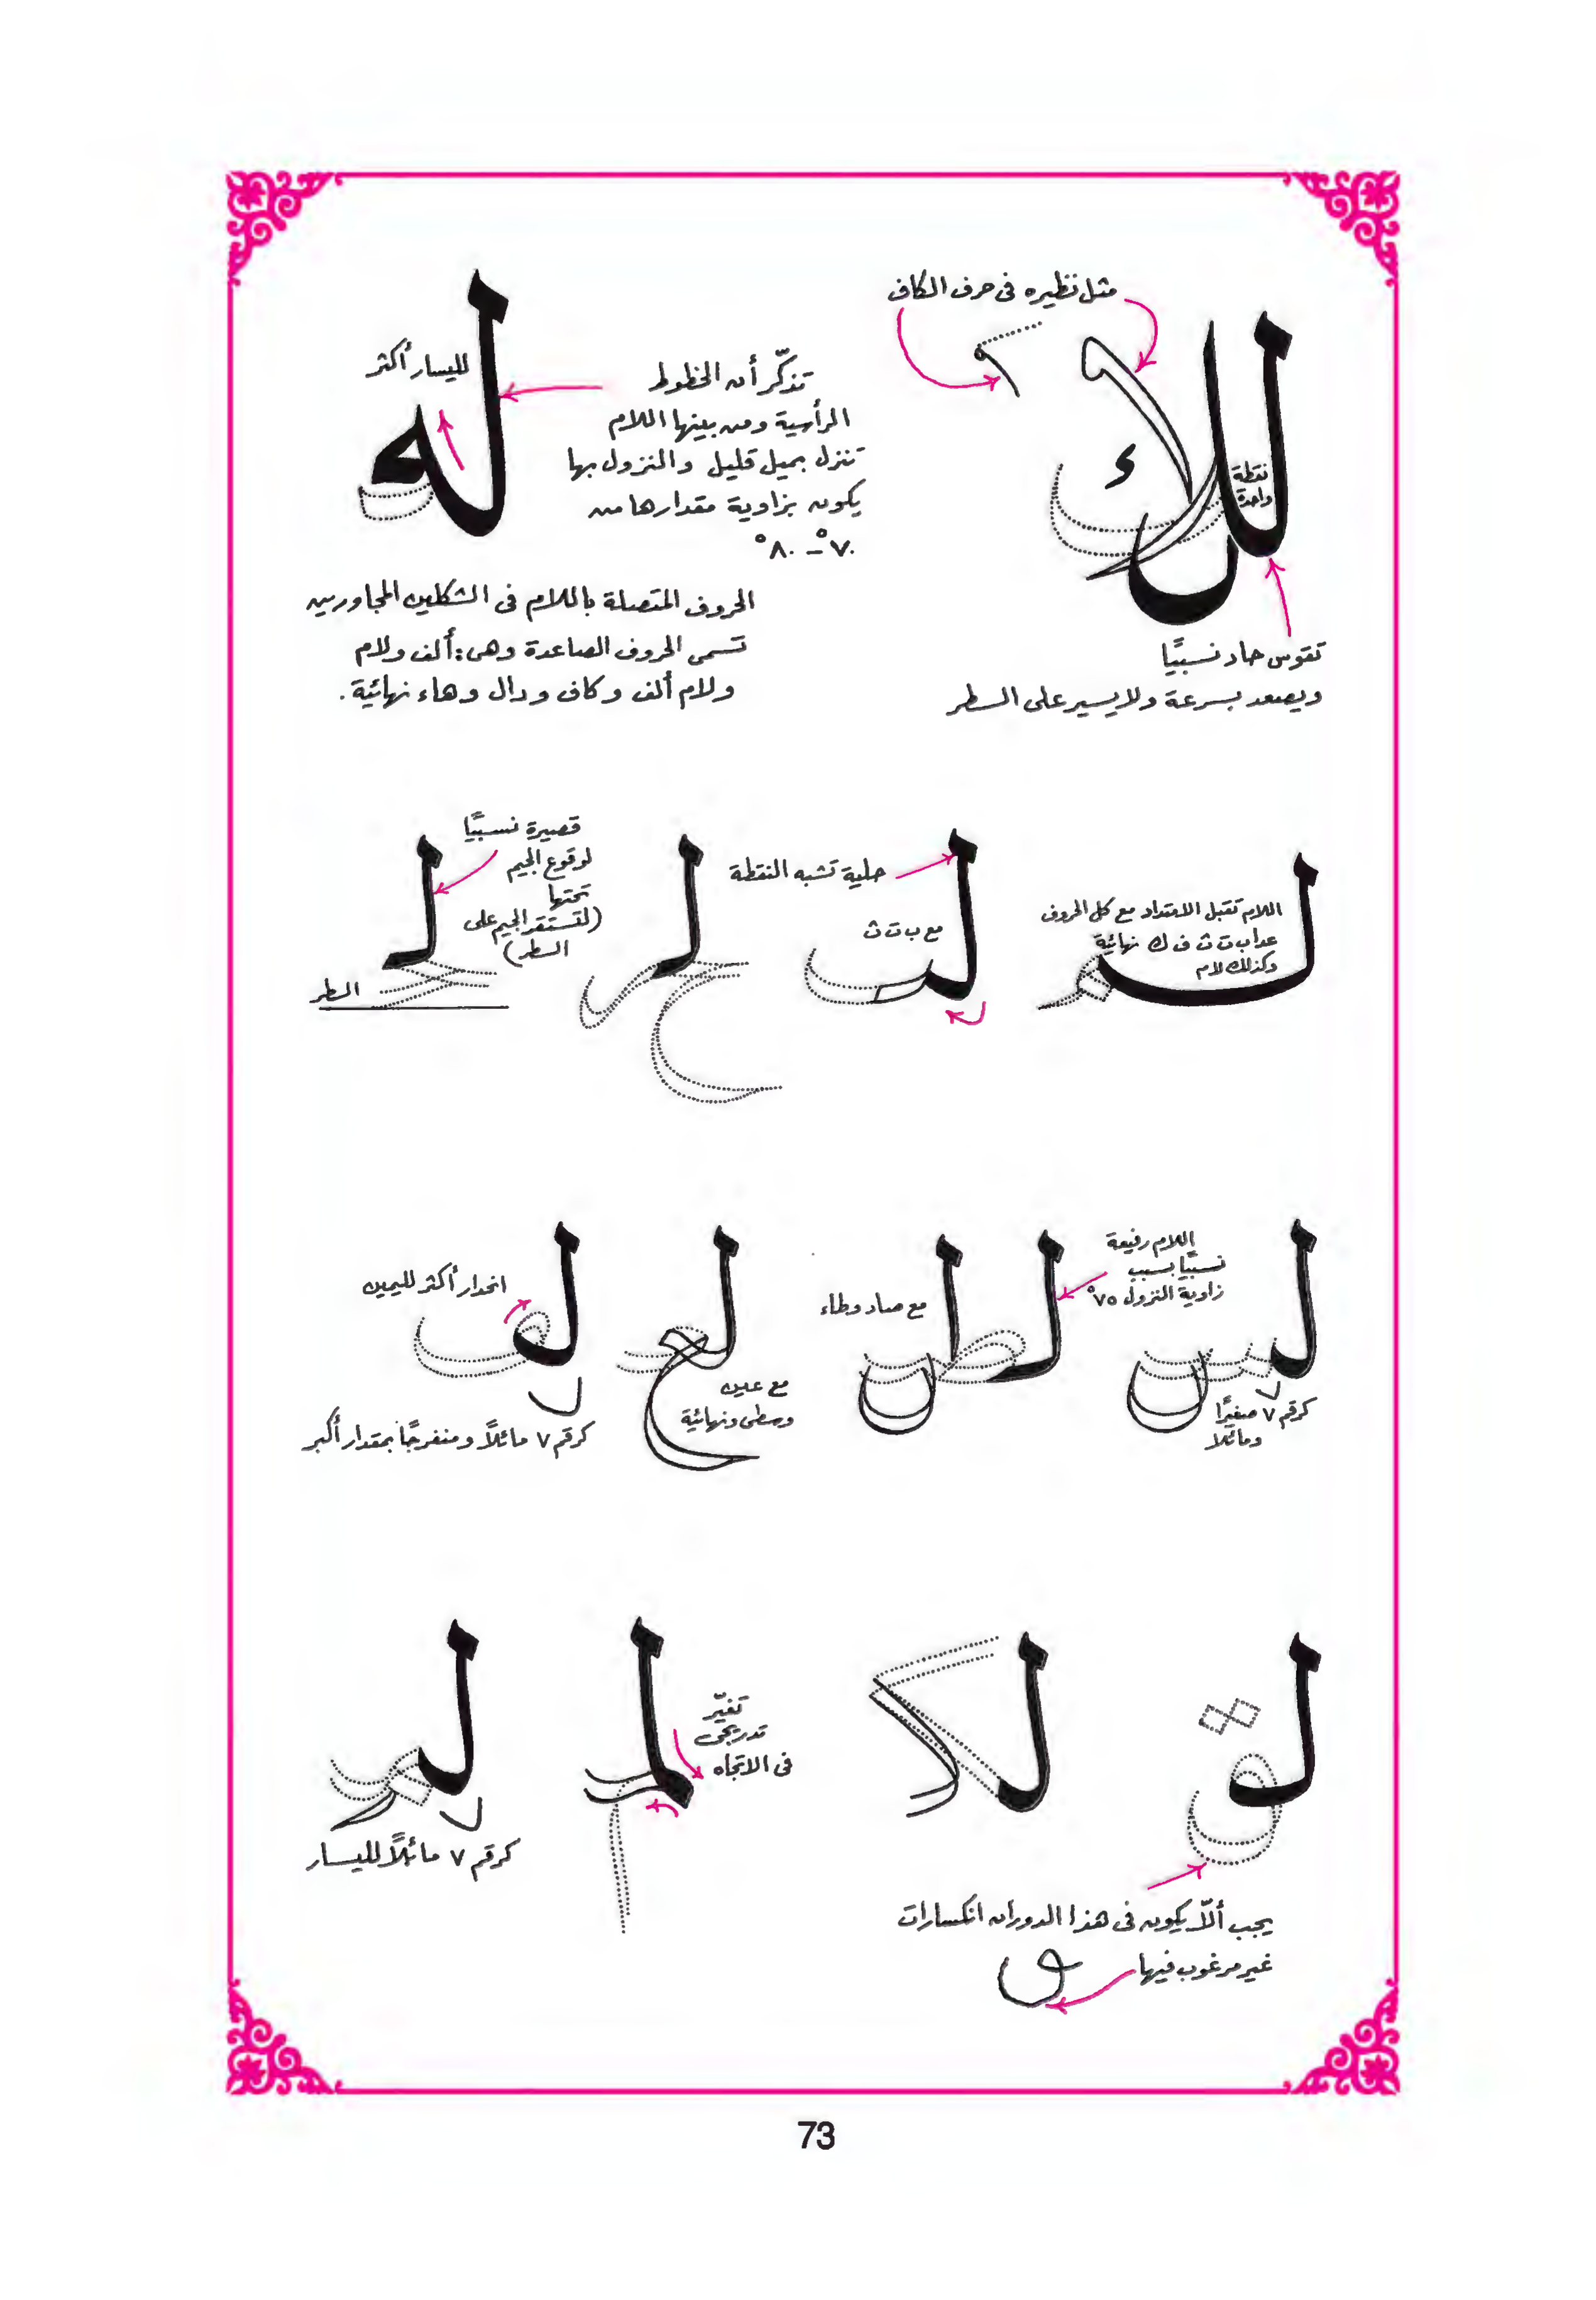 مثل نظيره فى حرف الكاف
نقطة
واحدة
تقوس حاد نسبيًا
ويصعد بسرعة ولا يسير على السطر
لله
لليسار أكثر
تذكّر أن الخطوط
الرأسية ومن بينها اللام
تنزل بميل قليل والنزول بها
يكون بزاوية مقدارها من
٧٠° – ٨٠°
الحروف المتصلة باللام فى الشكلين المجاورين
تسمى الحروف الصاعدة وهى: ألف ولام
ولام ألف وكاف ودال وهاء نهائية.
اللام تقبل الامتداد مع كل الحروف
عدا ب ت ث ف ك نهائية
وكذلك لام
حلية تشبه النقطة
مع ب ت ث
قصيرة نسبيًا
لوقوع الجيم
تحتها
(لتستقر الجيم على
السطر)
السطر
اللام رفيعة
نسبيًا بسبب
زاوية النزول ٧٥°
كرقم ٧ صغيرًا
ومائلا
مع صاد وطاء
مع عين
وسطى ونهائية
انحدار أكثر لليمين
كرقم ٧ مائلاً ومنفرجًا بمقدار أكبر
يجب ألاّ يكون فى هذا الدوران انكسارات
غير مرغوب فيها
تغيّر
تدريجى
فى الاتجاه
كرقم ٧ مائلاً لليسار
73